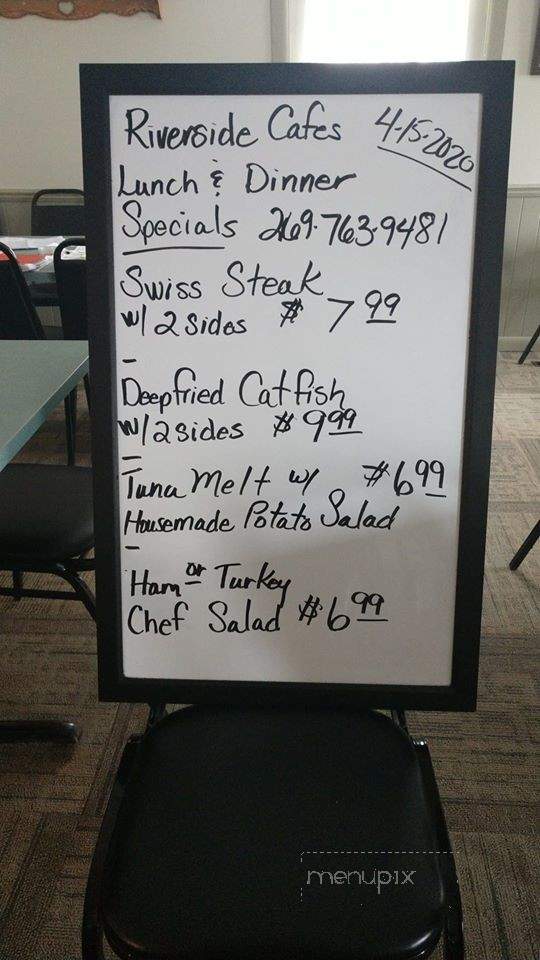 Riverside Cafes 4-15-2020
Lunch & Dinner
Specials 269.763.9481
Swiss Steak
w/ 2 sides $ 7 99
-
Deepfried Catfish
w/ 2 sides $ 9 99
=
Tuna Melt w/ $6 99
Housemade Potato Salad
-
Ham or Turkey
Chef Salad $6 99
menupix